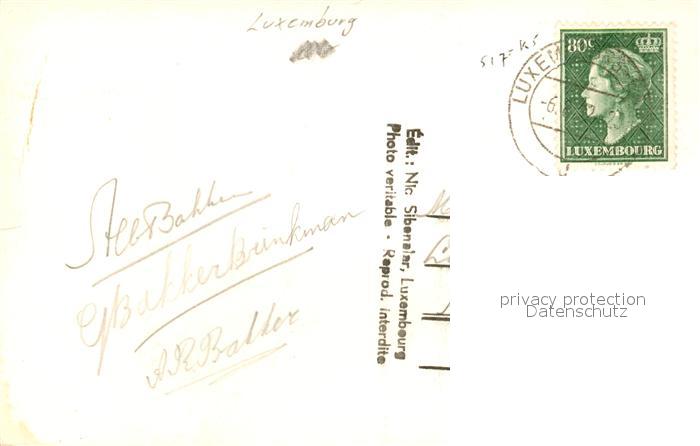 Luxemburg
517-K5
80c
LUXEMBOURG
LUXEM
-6.
Édit.: Nic Sibenaler, Luxembourg
Photo veritable - Reprod. interdite
Bakker
G Bakker Brinkman
A R Bakker
privacy protection
Datenschutz